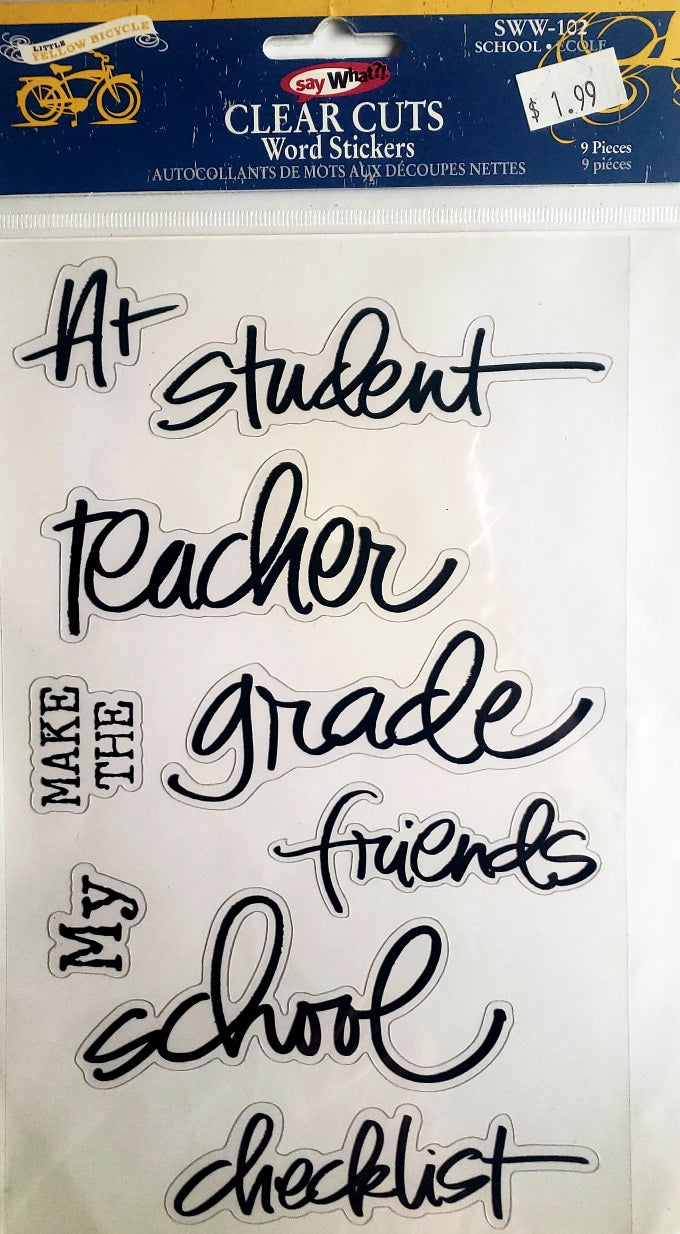 LITTLE
YELLOW BICYCLE
SWW-102
SCHOOL • ÉCOLE
say What?!
$ 1.99
CLEAR CUTS
Word Stickers
9 Pieces
9 piéces
AUTOCOLLANTS DE MOTS AUX DÉCOUPES NETTES
A+
student
teacher
MAKE
THE
grade
friends
My
school
checklist